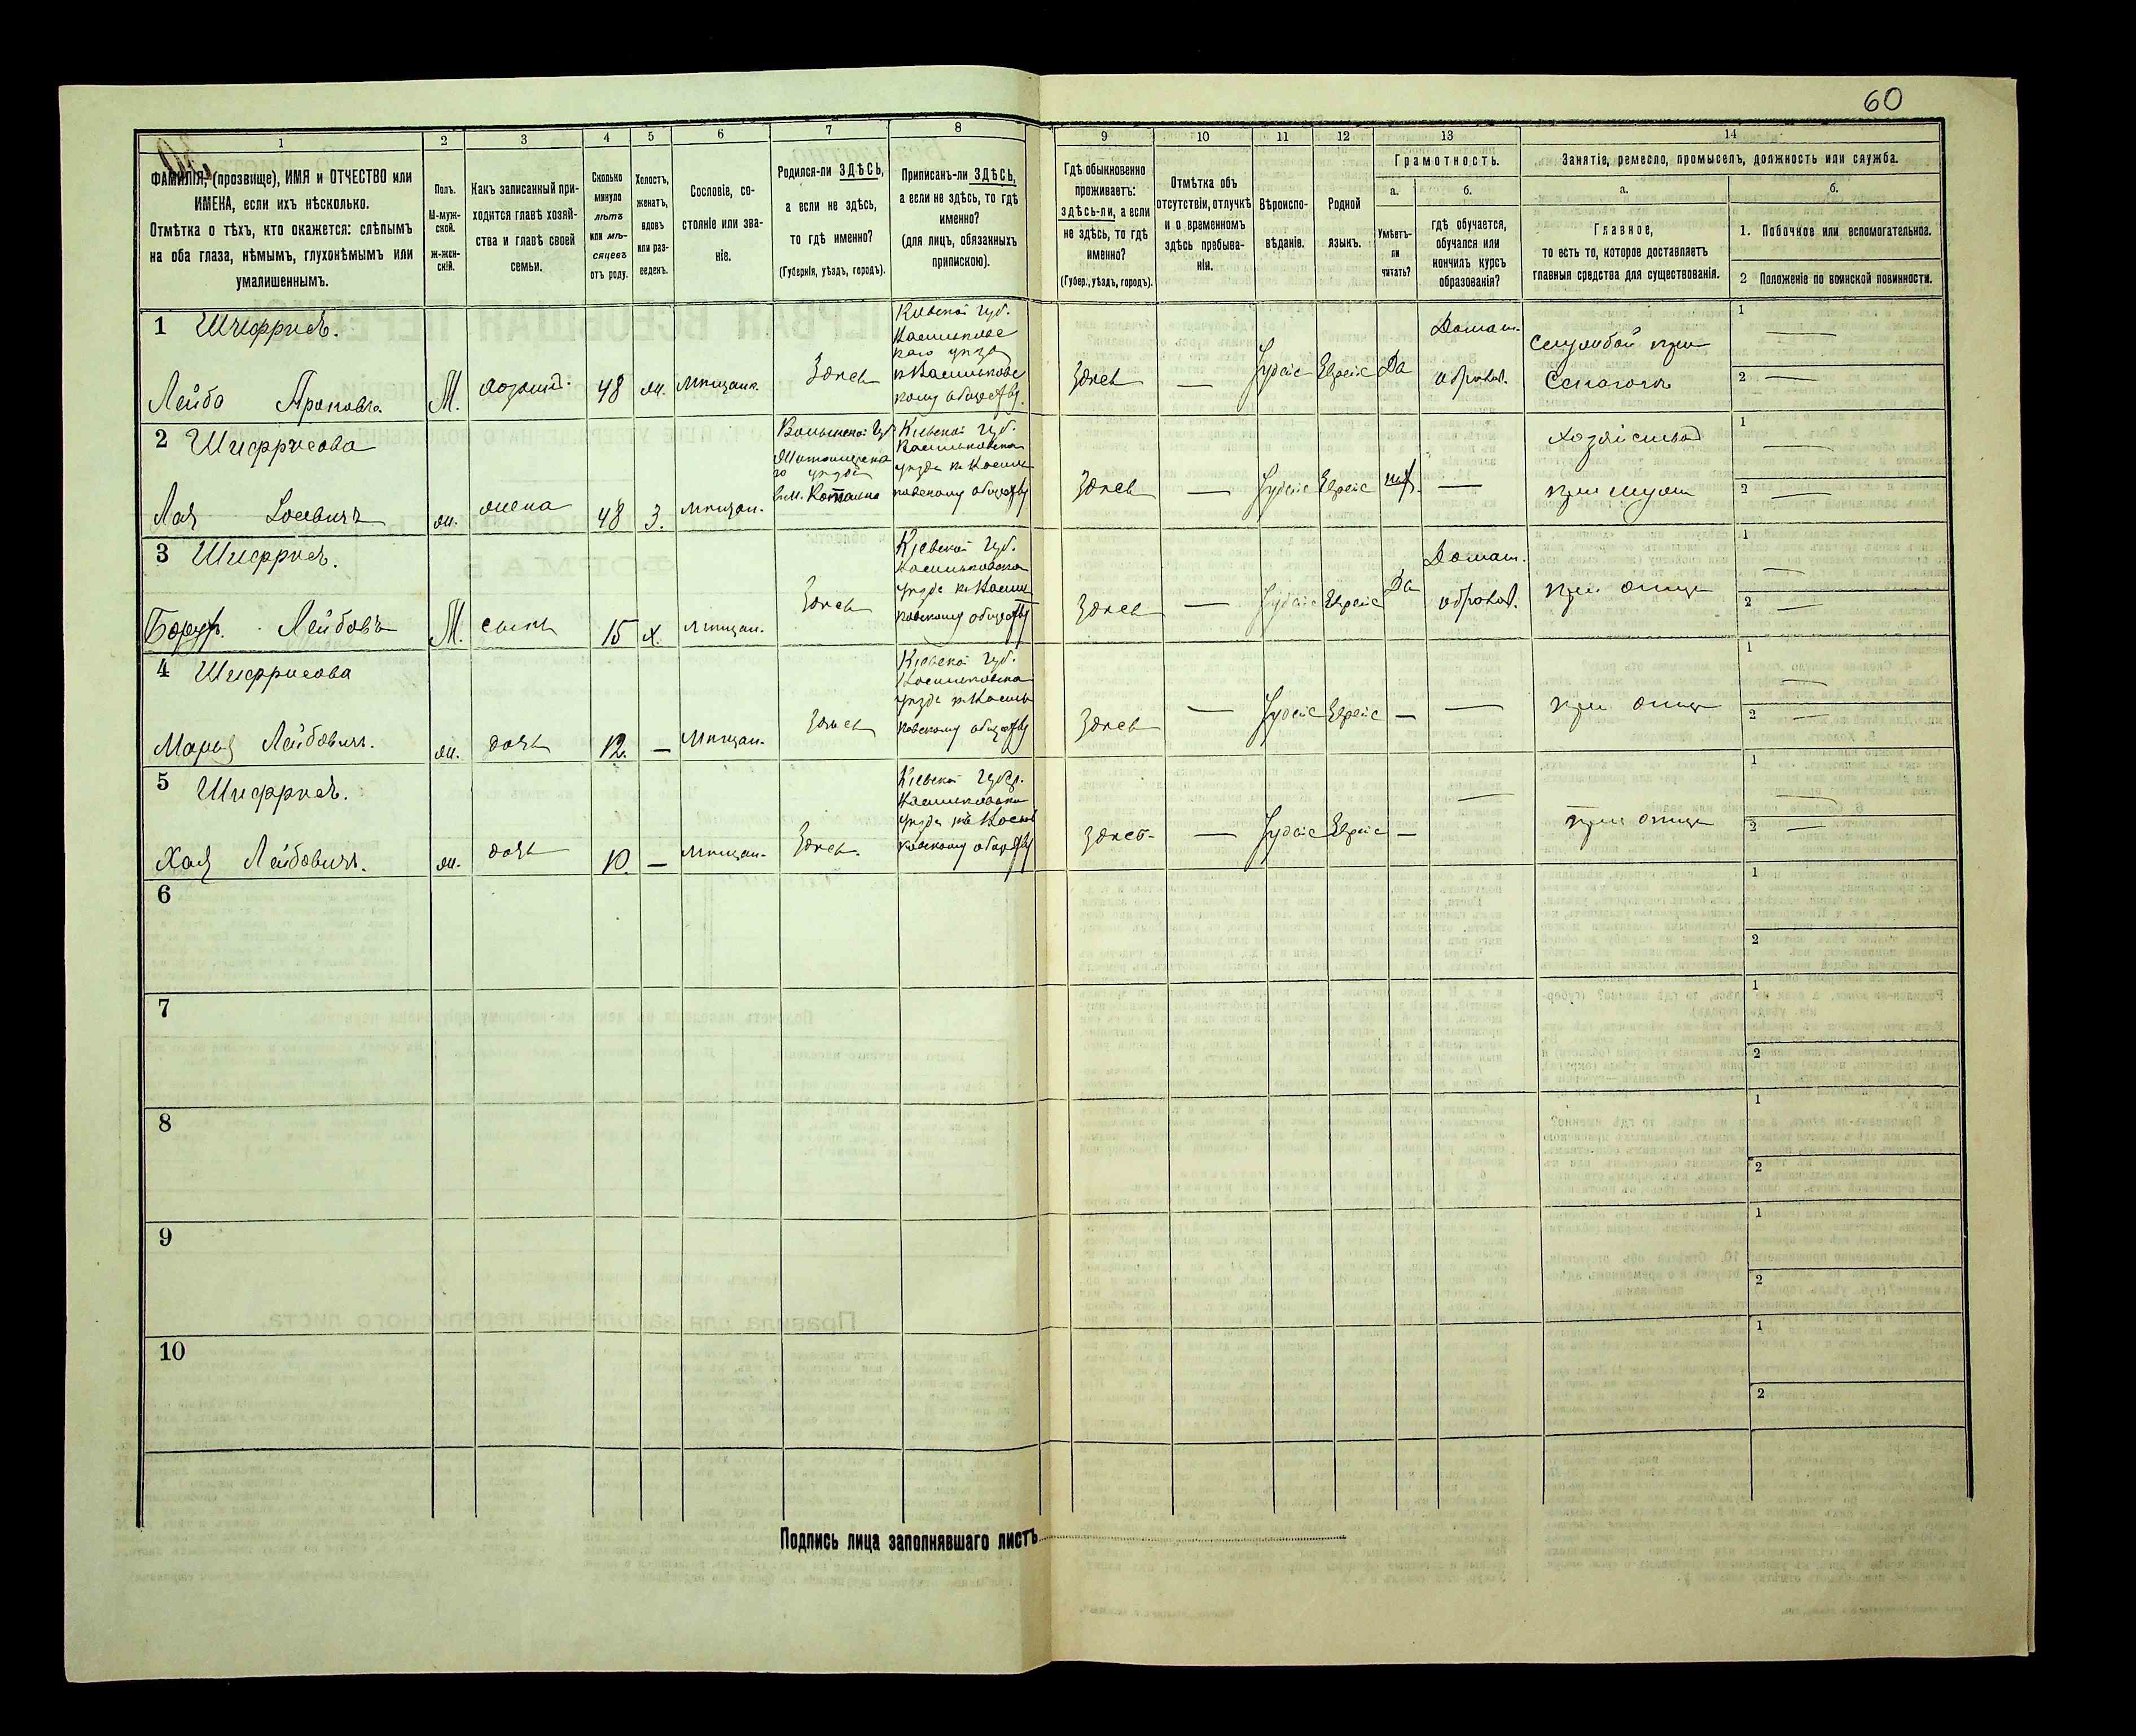 60
1
2
3
4
5
6
7
8
9
10
11
12
13
14
ФАМИЛІЯ, (прозвище), ИМЯ и ОТЧЕСТВО или
ИМЕНА, если ихъ нѣсколько.
Отмѣтка о тѣхъ, кто окажется: слѣпымъ
на оба глаза, нѣмымъ, глухонѣмымъ или
умалишеннымъ.
Полъ.
М-муж-
ской.
Ж-жен-
скій.
Какъ записанный при-
ходится главѣ хозяй-
ства и главѣ своей
семьи.
Сколько
минуло
лѣтъ
или мѣ-
сяцевъ
отъ роду.
Холостъ,
женатъ,
вдовъ
или раз-
веденъ.
Сословіе, со-
стояніе или зва-
ніе.
Родился-ли ЗДѢСЬ,
а если не здѣсь,
то гдѣ именно?
(Губернія, уѣздъ, городъ).
Приписанъ-ли ЗДѢСЬ,
а если не здѣсь, то гдѣ
именно?
(для лицъ, обязанныхъ
припискою).
Гдѣ обыкновенно
проживаетъ:
здѣсь-ли, а если
не здѣсь, то гдѣ
именно?
(Губер., уѣздъ, городъ).
Отмѣтка объ
отсутствіи, отлучкѣ
и о временномъ
здѣсь пребыва-
ніи.
Вѣроиспо-
вѣданіе.
Родной
языкъ.
Грамотность.
а.
Умѣетъ-
ли
читать?
б.
гдѣ обучается,
обучался или
кончилъ курсъ
образованія?
Занятіе, ремесло, промыселъ, должность или служба.
а.
Главное,
то есть то, которое доставляетъ
главныя средства для существованія.
б.
1. Побочное или вспомогательное.
2 Положеніе по воинской повинности.
1 Шифрисъ.
Лейба Ароновъ
М.
хозяинъ
48
ж.
мѣщан.
Здѣсь
Кіевской губ.
Васильковс
каго уѣзда
къ Васильковс
кому обществу
Здѣсь
—
Іудейс
Еврейс
Да
Домаш.
образов.
Службой при
Сенагогѣ
1 —
2 —
2 Шифрисова
Лая
ж.
жена
48
З.
мѣщан.
Волынской губ
Житомирска
го уѣзда
Кіевской губ.
Васильковска
уѣзда къ Василь
ковскому обществу
Здѣсь
—
Іудейс
Еврейс
нѣт.
—
хозяйство
при мужѣ
1 —
2 —
3 Шифрисъ.
Борух. Лейбовъ
М.
сынъ
15
х.
мѣщан.
Здѣсь
Кіевской губ.
Васильковска
уѣзда къ Василь
ковскому обществу
Здѣсь
—
Іудейс
Еврейс
Да
Домаш.
образов.
при отцѣ
1 —
2 —
4 Шифрисова
Марья Лейбовичъ.
ж.
дочь
12.
—
Мѣщан.
Здѣсь
Кіевской губ.
Васильковска
уѣзда къ Василь
ковскому обществу
Здѣсь
—
Іудейс
Еврейс
—
—
при отцѣ
1 —
2 —
5 Шифрисъ.
Хая Лейбовичъ.
ж.
дочь
10.
—
Мѣщан.
Здѣсь.
Васильковска
уѣзда къ Василь
ковскому обществу
Здѣсь
—
Іудейс
Еврейс
—
—
при отцѣ
1 —
2 —
6
1
2
7
1
2
8
1
2
9
1
2
10
1
2
Подпись лица заполнявшаго листъ